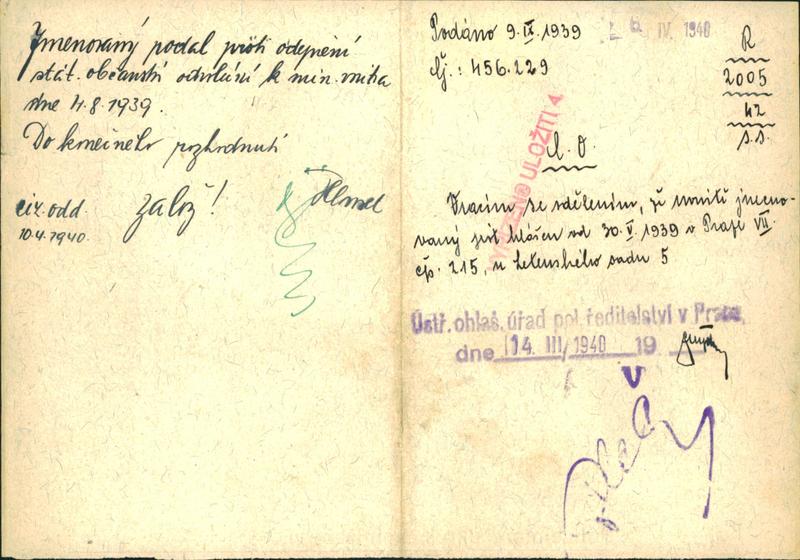 Jmenovaný podal proti odepření
stát. občanství odvolání k min. vnitra
dne 4.8.1939.
Do konečného rozhodnutí
založ!
ciz. odd.
10.4.1940.
Podáno 9.IX.1939
IV. 1940
čj.: 456.229
R
2005
42
s.s.
VYŘÍZENO ULOŽITI
O.
Vracím se sdělením, že nonitů jmeno-
vaný jest hlášen od 30.V.1939 v Praze VII
čp. 215, u Letenského sadu 5
Ústř. ohlaš. úřad pol. ředitelství v Praze,
dne 14. III/1940 19